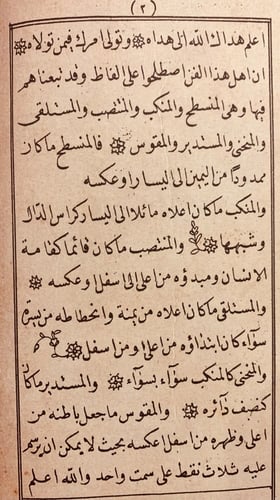 (٢)
اعلم هداك الله الى هداه وتولى امرك فيمن تولاه
ان اهل هذا الفن اصطلحوا على الفاظ وقد تبعناهم
فيها وهي المنسطح والمنكب والمنتصب والمستلقى
والمنحنى والمستدير والمقوس فالمنسطح ما كان
ممدودًا من اليمين الى اليسار او عكسه
والمنكب ما كان اعلاه مائلا الى اليسار كراس الدال
وشبهها والمنتصب ما كان قائما كقامة
الانسان ومبدؤه من اعلى الى اسفل او عكسه
والمستلقى ما كان اعلاه من يمنة وانحطاطه من يسرة
سواء كان ابتداؤه من اعلى او من اسفل
والمنحنى كالمنكب سواء بسواء والمستدير ما كان
كنصف دائره والمقوس ما جعل باطنه من
اعلى وظهره من اسفل او عكسه بحيث لا يمكن ان يرسم
عليه ثلاث نقط على سمت واحد والله اعلم